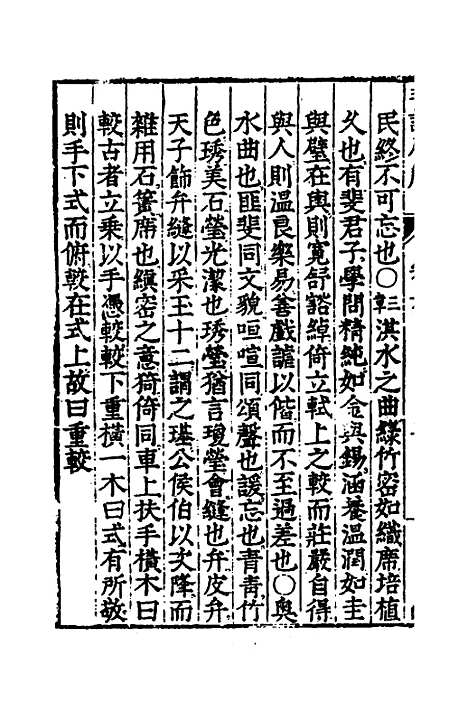 民終不可忘也○三章淇水之曲綠竹密如織席培植
久也有斐君子學問精純如金與錫涵養溫潤如圭
與璧在輿則寬舒豁綽倚立軾上之較而莊嚴自得
與人則溫良樂易善戲謔以偕而不至過差也○奧
水曲也匪斐同文貌咺喧同頌聲也諼忘也青青竹
色琇美石瑩光潔也琇瑩猶言瓊瑩會縫也弁皮弁
天子飾弁縫以采玉十二謂之璂公侯伯以次降而
雜用石簀席也縝密之意猗倚同車上扶手橫木曰
較古者立乘以手憑較較下重橫一木曰式有所敬
則手下式而俯較在式上故曰重較